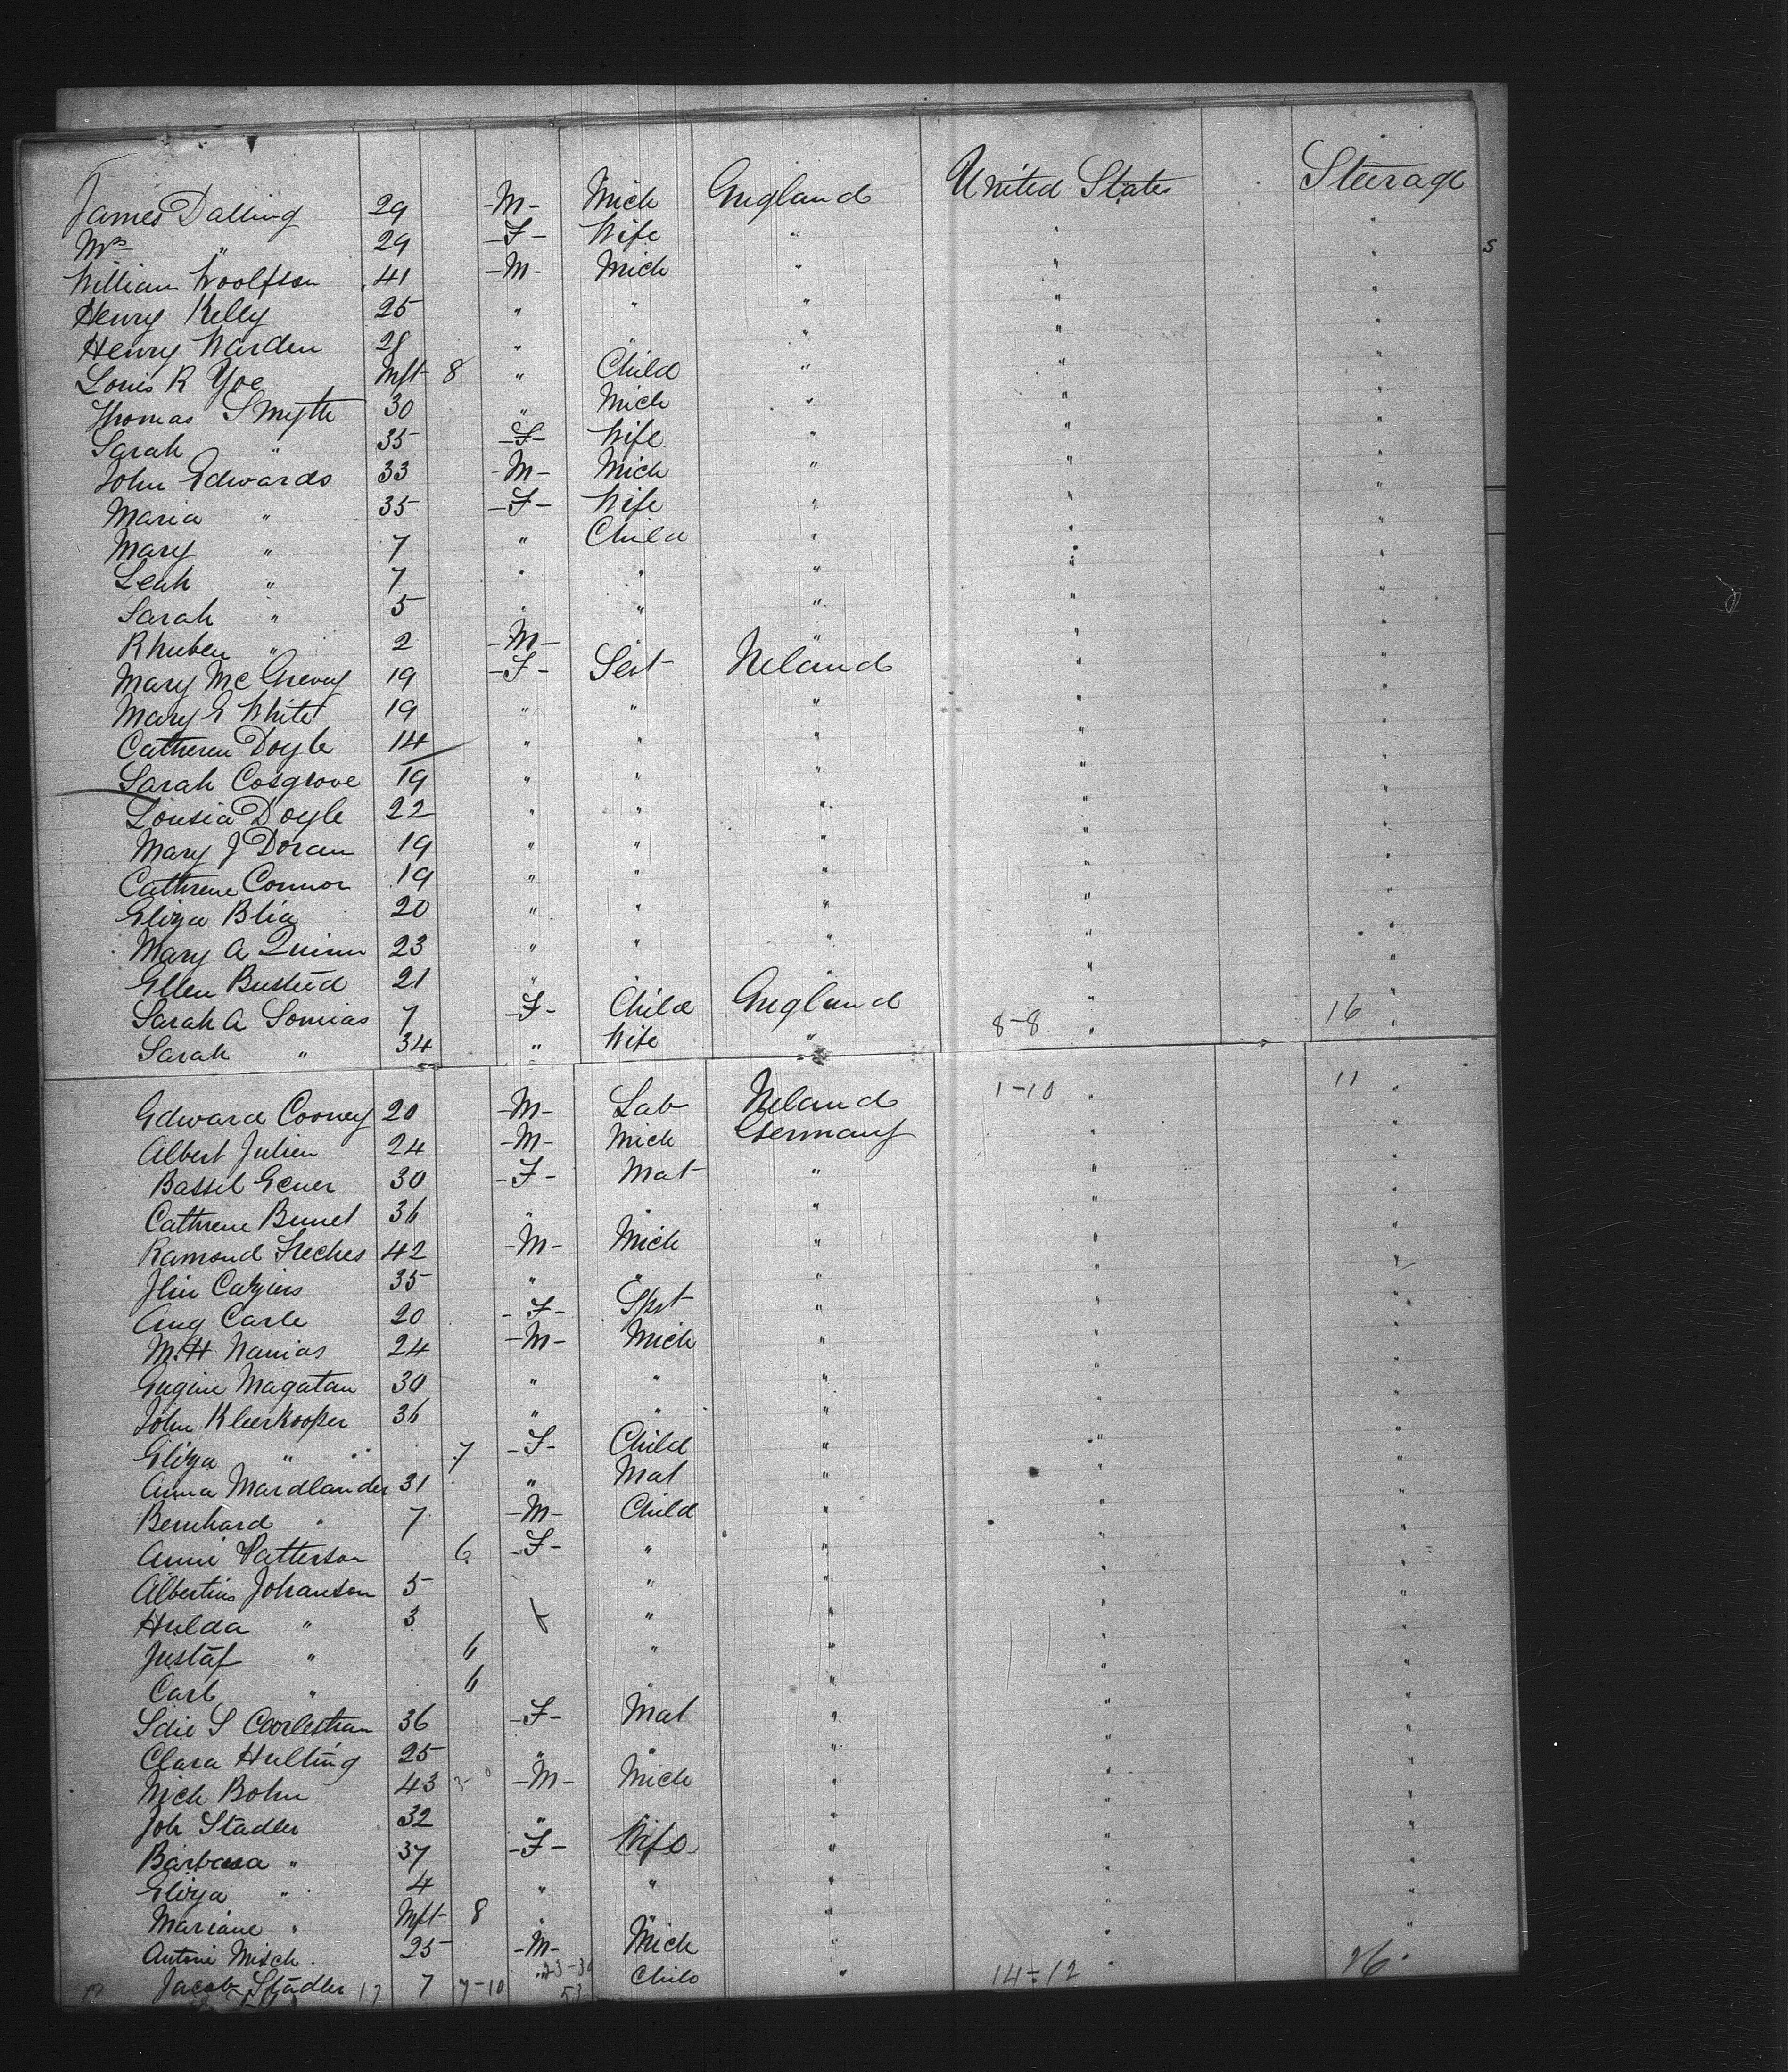 James Dalling 29 -M- Mich England United States Steerage
Mrs " 29 -F- Wife " " "
William Woolfson 41 -M- Mich " " "
Henry Kelly 25 " " " " "
Henry Warden 28 " " " " "
Louis R Yoe Inft 8 " Child " " "
Thomas Smyth 30 " Mich " " "
Sarah " 35 -F- Wife " " "
John Edwards 33 -M- Mich " " "
Maria " 35 -F- Wife " " "
Mary " 7 " Child " " "
Leah " 7 " " " " "
Sarah " 5 " " " " "
Rhuben " 2 -M- " " "
Mary McGrevy 19 -F- Sert Ireland " "
Mary E White 19 " " " " "
Catheren Doyle 14 " " " " "
Sarah Cosgrove 19 " " " " "
Lousia Doyle 22 " " " " "
Mary J Doran 19 " " " " "
Cathrene Connor 19 " " " " "
Eliza Blia 20 " " " " "
Mary A Quinn 23 " " " " "
Ellen Busteed 21 " " " " "
Sarah A Somias 7 -F- Child England 8-8 " 16 "
Sarah " 34 " Wife "
Edward Cooney 20 -M- Lab Ireland 1-10 " 11 "
Albert Julien 24 -M- Mich Germany " "
Bassil Gener 30 -F- Mat " " "
Cathrene Bunel 36 " " " " "
Ramond Freches 42 -M- Mich " " "
Jlin Cazins 35 " " " " "
Aug Carle 20 -F- Spst " " "
M.H Nanias 24 -M- Mich " " "
Eugine Magatan 30 " " " " "
John Kleerkooper 36 " " " " "
Eliza " " 7 -F- Child " " "
Anna Mardlander 31 " Mat " " "
Bernhard " 7 -M- Child " " "
Annie Patterson 6 -F- " " " "
Albertins Johanson 5 " " " "
Hulda " 3 f " " " "
Justaf " 6 " " " "
Carl " 6 " " " "
Sdie S Carlestran 36 -F- Mat " " "
Clara Hulting 25 " " " " "
Nick Bohn 43 -M- Mich " " "
Joh Stadler 32 " " " "
Barbara " 37 -F- Wife " " "
Eliza " 4 " " " " "
Mariane " Inft 8 " " " " "
Antoni Misch 25 -M- Mich " " "
Jacob Stadler 17 7 7-10 " 23-30 Child " 14-12 " 26
53